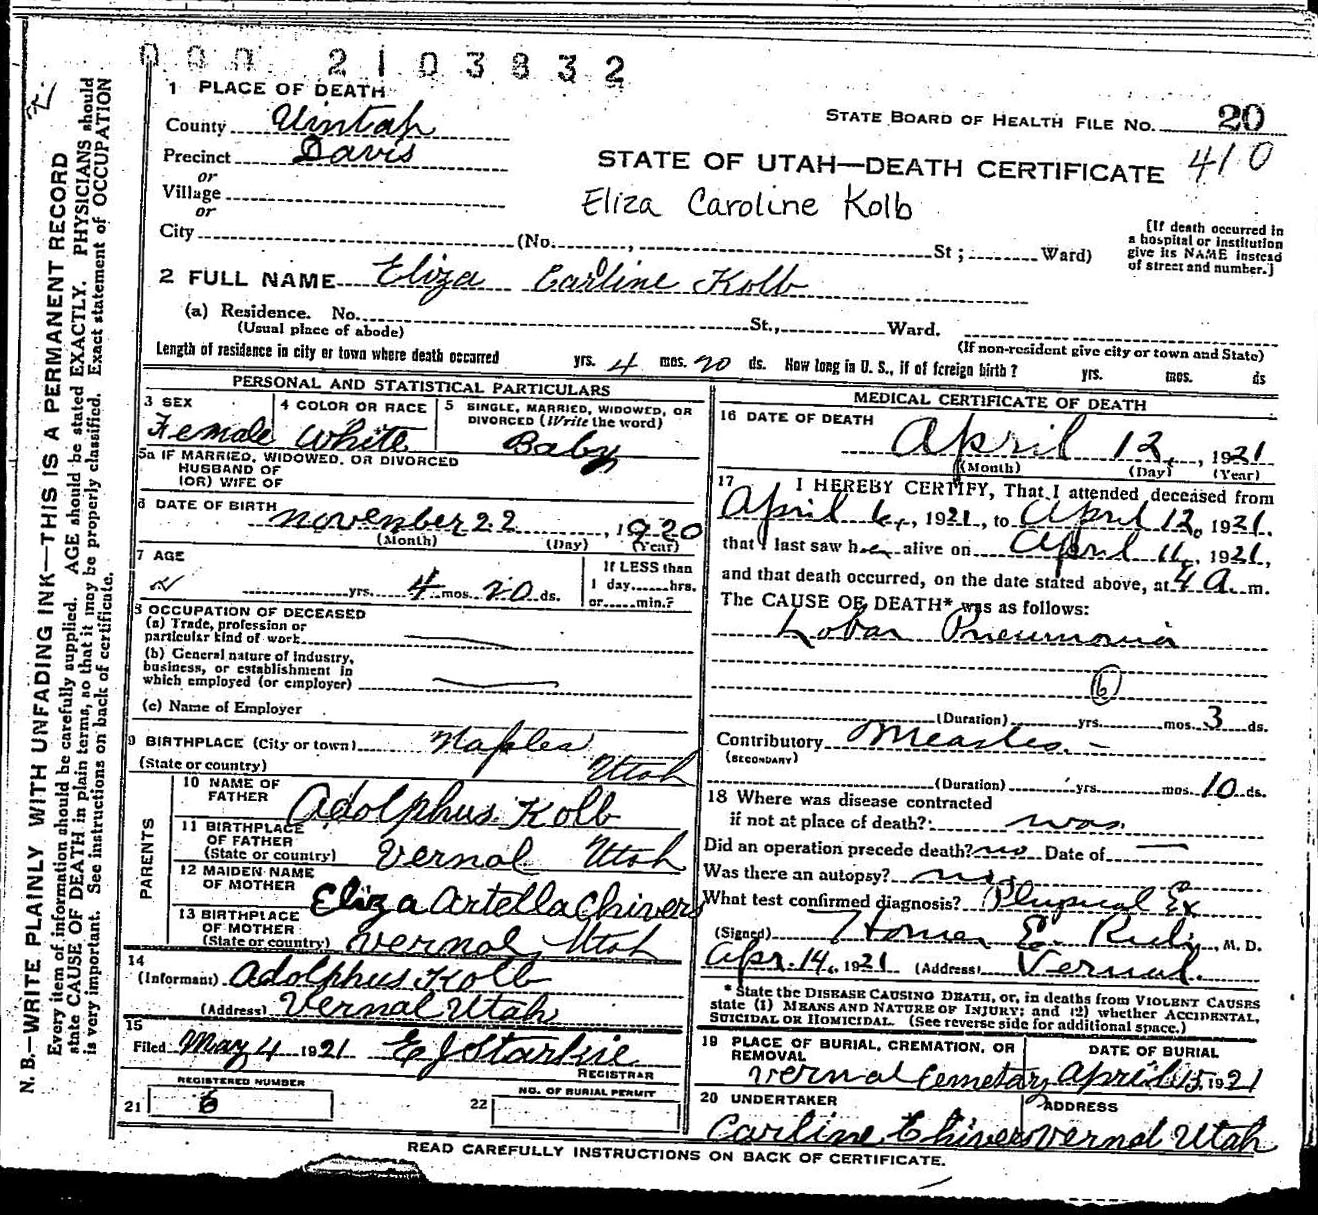 000 2103832
1 PLACE OF DEATH
STATE BOARD OF HEALTH FILE NO. 20
County Uintah
410
Precinct Davis
STATE OF UTAH—DEATH CERTIFICATE
or
Village
Eliza Caroline Kolb
or
City (No. , St ; Ward)
[If death occurred in
a hospital or institution
give its NAME instead
of street and number.]
2 FULL NAME Eliza Carline Kolb
(a) Residence. No. St., Ward.
(Usual place of abode)
(If non-resident give city or town and State)
Length of residence in city or town where death occurred yrs. 4 mos. 20 ds. How long in U. S., if of foreign birth? yrs. mos. ds
PERSONAL AND STATISTICAL PARTICULARS
3 SEX Female
4 COLOR OR RACE White
5 SINGLE, MARRIED, WIDOWED, OR
DIVORCED (Write the word)
Baby
5a IF MARRIED, WIDOWED, OR DIVORCED
HUSBAND OF
(OR) WIFE OF
6 DATE OF BIRTH November 22, 1920
(Month) (Day) (Year)
7 AGE
yrs. 4 mos. 20 ds.
If LESS than
1 day......hrs.
or......min.?
8 OCCUPATION OF DECEASED
(a) Trade, profession or
particular kind of work
(b) General nature of industry,
business, or establishment in
which employed (or employer)
(c) Name of Employer
9 BIRTHPLACE (City or town) Naples
(State or country) Utah
PARENTS
10 NAME OF
FATHER Adolphus Kolb
11 BIRTHPLACE
OF FATHER
(State or country) Vernal Utah
12 MAIDEN NAME
OF MOTHER Eliza Artella Chivers
13 BIRTHPLACE
OF MOTHER
(State or country) Vernal, Utah
14
(Informant) Adolphus Kolb
(Address) Vernal Utah
15
Filed May 4 1921 E J Starkie
REGISTRAR
REGISTERED NUMBER
21 6
NO. OF BURIAL PERMIT
22
MEDICAL CERTIFICATE OF DEATH
16 DATE OF DEATH
April 12, 1921
(Month) (Day) (Year)
17 I HEREBY CERTIFY, That I attended deceased from
April 6, 1921, to April 12, 1921.
that I last saw her alive on April 11, 1921,
and that death occurred, on the date stated above, at 4 A. m.
The CAUSE OF DEATH* was as follows:
Lobar Pneumonia
6
(Duration) yrs. mos. 3 ds.
Contributory Measles. -
(SECONDARY)
(Duration) yrs. mos. 10 ds.
18 Where was disease contracted
if not at place of death? was
Did an operation precede death? no Date of —
Was there an autopsy? no
What test confirmed diagnosis? Physical Ex
(Signed) Homer E. M. D.
Apr. 14, 1921 (Address) Vernal.
* State the DISEASE CAUSING DEATH, or, in deaths from VIOLENT CAUSES
state (1) MEANS AND NATURE OF INJURY; and (2) whether ACCIDENTAL,
SUICIDAL OR HOMICIDAL. (See reverse side for additional space.)
19 PLACE OF BURIAL, CREMATION, OR
REMOVAL
Vernal Cemetary
DATE OF BURIAL
April 15 1921
20 UNDERTAKER
Carline Chivers
ADDRESS
Vernal Utah
READ CAREFULLY INSTRUCTIONS ON BACK OF CERTIFICATE.
N. B.—WRITE PLAINLY WITH UNFADING INK—THIS IS A PERMANENT RECORD
Every item of information should be carefully supplied. AGE should be stated EXACTLY. PHYSICIANS should
state CAUSE OF DEATH in plain terms, so that it may be properly classified. Exact statement of OCCUPATION
is very important. See instructions on back of certificate.